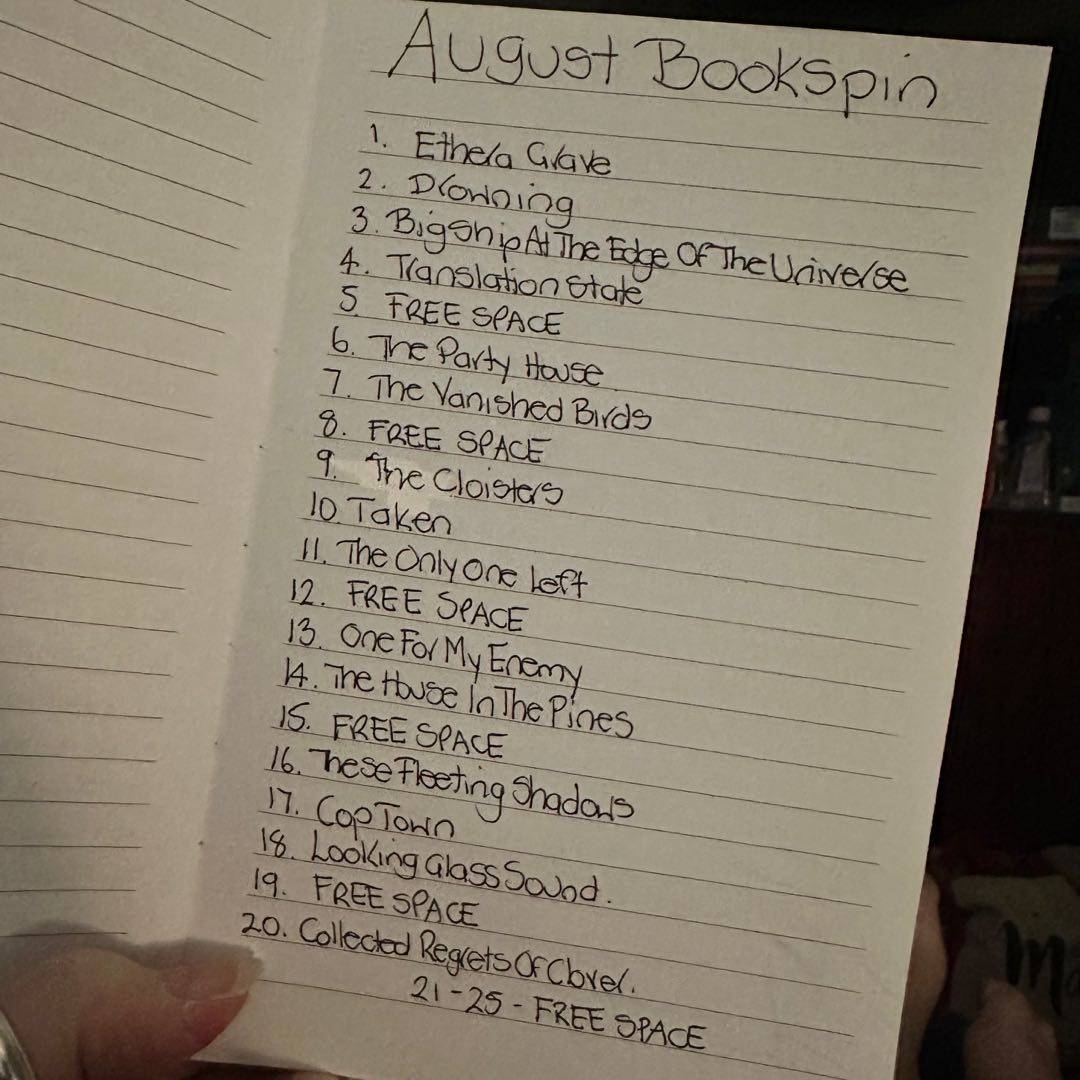 August Bookspin
1. Ethera Grave
2. Drowning
3. Big Ship At The Edge Of The Universe
4. Translation State
5 FREE SPACE
6. The Party House
7. The Vanished Birds
8. FREE SPACE
9. The Cloisters
10. Taken
11. The Only One Left
12. FREE SPACE
13. One For My Enemy
14. The House In The Pines
15. FREE SPACE
16. These Fleeting Shadows
17. Cop Town
18. Looking Glass Sound.
19. FREE SPACE
20. Collected Regrets Of Clover.
21-25 - FREE SPACE